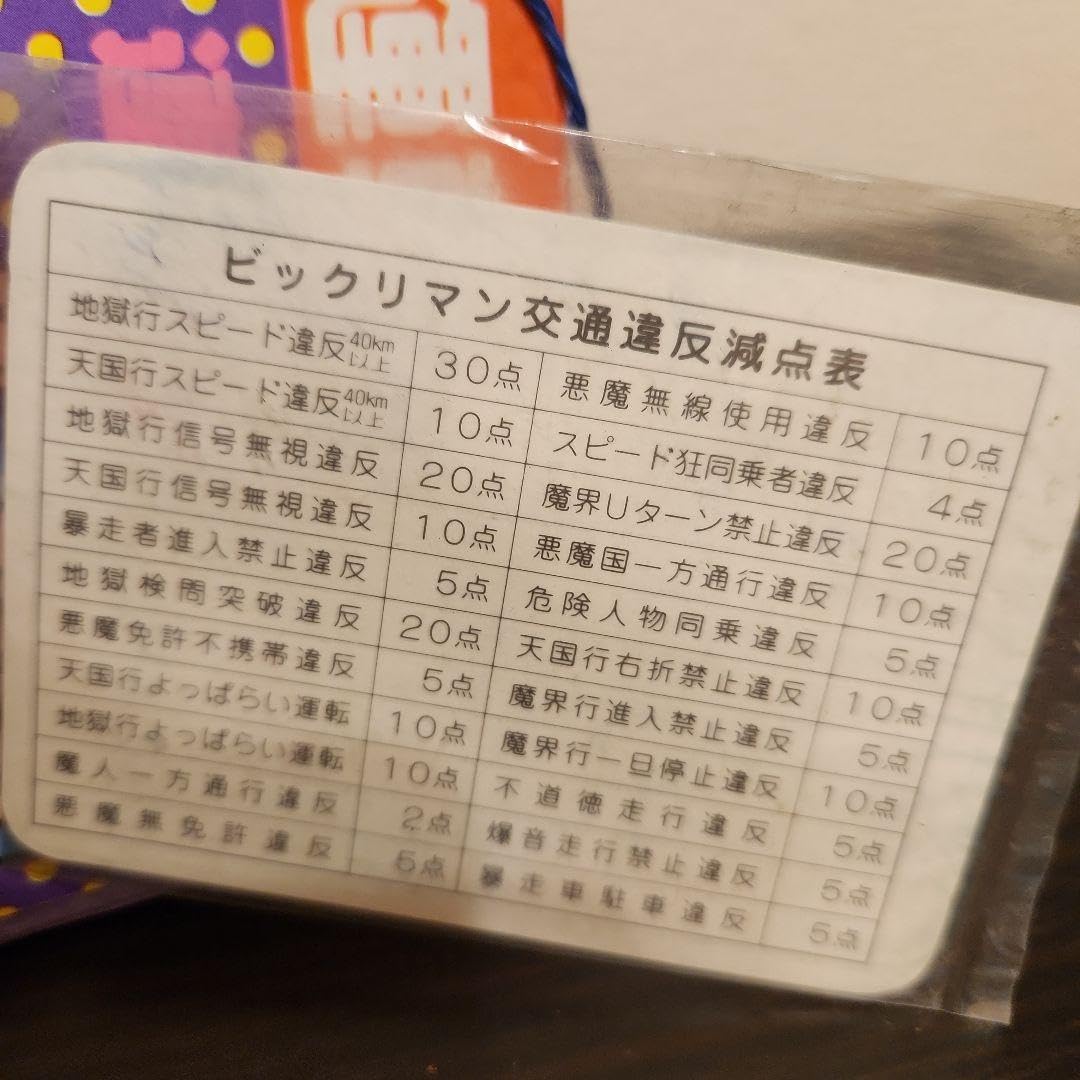 ビックリマン交通違反減点表
地獄行スピード違反40km以上 30点
天国行スピード違反40km以上 10点
地獄行信号無視違反 20点
天国行信号無視違反 10点
暴走者進入禁止違反 5点
地獄検問突破違反 20点
悪魔免許不携帯違反 5点
天国行よっぱらい運転 10点
地獄行よっぱらい運転 10点
魔人一方通行違反 2点
悪魔無免許違反 5点
悪魔無線使用違反 10点
スピード狂同乗者違反 4点
魔界Uターン禁止違反 20点
悪魔国一方通行違反 10点
危険人物同乗違反 5点
天国行右折禁止違反 10点
魔界行進入禁止違反 5点
魔界行一旦停止違反 10点
不道徳走行違反 5点
爆音走行禁止違反 5点
暴走車駐車違反 5点